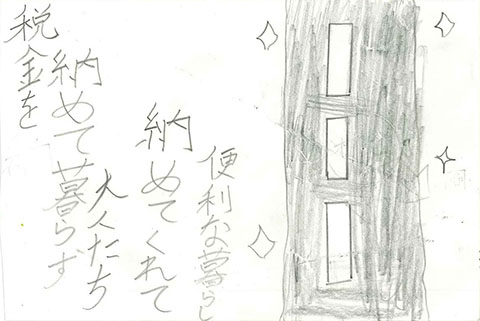 税金を
納めて暮らず
大人たち
納めてくれて
便利な暮らし